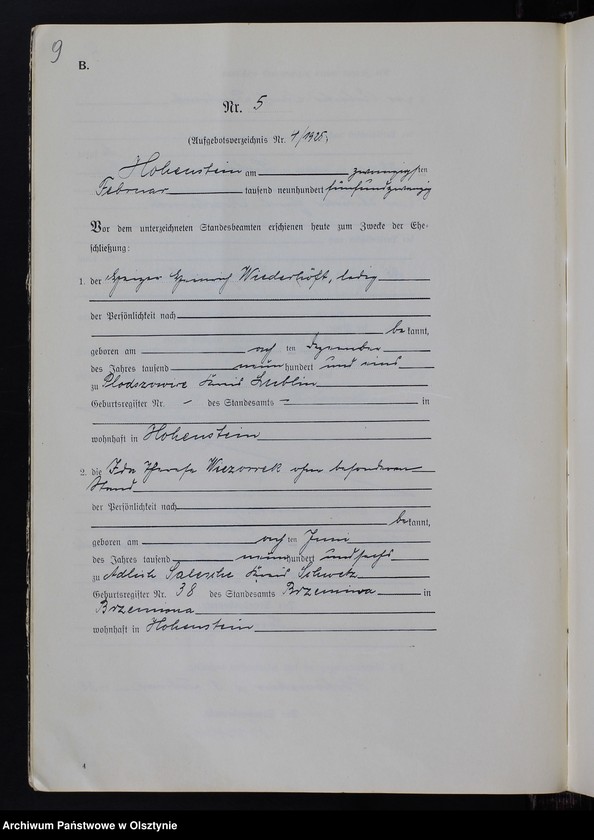 9
B.
Nr. 5
(Aufgebotsverzeichnis Nr. 1/1925)
Hohenstein am zwanzigsten
Februar tausend neunhundert fünfundzwanzig
Vor dem unterzeichneten Standesbeamten erschienen heute zum Zwecke der Ehe-
schließung:
1. der Heinrich Wiederhöft, ledig
der Persönlichkeit nach
bekannt,
geboren am ach ten Dezember
des Jahres tausend neun hundert und eins
zu Kreis Lublin
Geburtsregister Nr. - des Standesamts - in
wohnhaft in Hohenstein
2. die Ida Therese Wiezorrek ohne besonderen
Stand
der Persönlichkeit nach
bekannt,
geboren am ach ten Juni
des Jahres tausend neun hundert und sechs
zu Adlich Salesche Kreis Schwetz
Geburtsregister Nr. 38 des Standesamts in
wohnhaft in Hohenstein
Archiwum Państwowe w Olsztynie